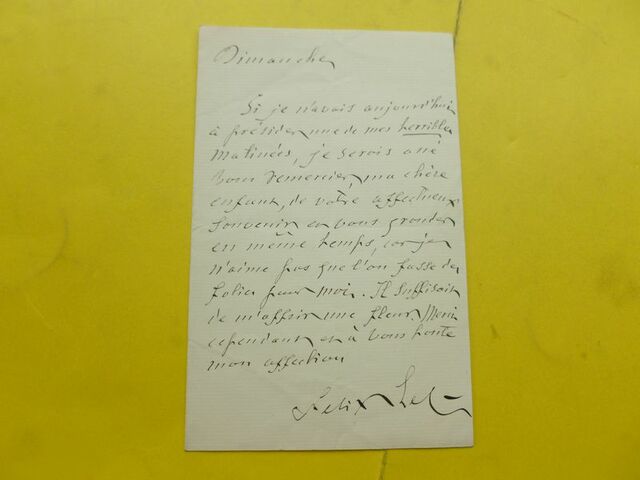 Dimanche
Si je n'avais aujourd'hui
à présider une de mes horribles
Matinées, je serais allé
vous remercier, ma chère
enfant, de votre affectueux
souvenir et vous gronder
en même temps, car je
n'aime pas que l'on fasse des
folies pour moi. Il suffisait
de m'offrir une fleur. Merci
cependant et à vous toute
mon affection
Felix